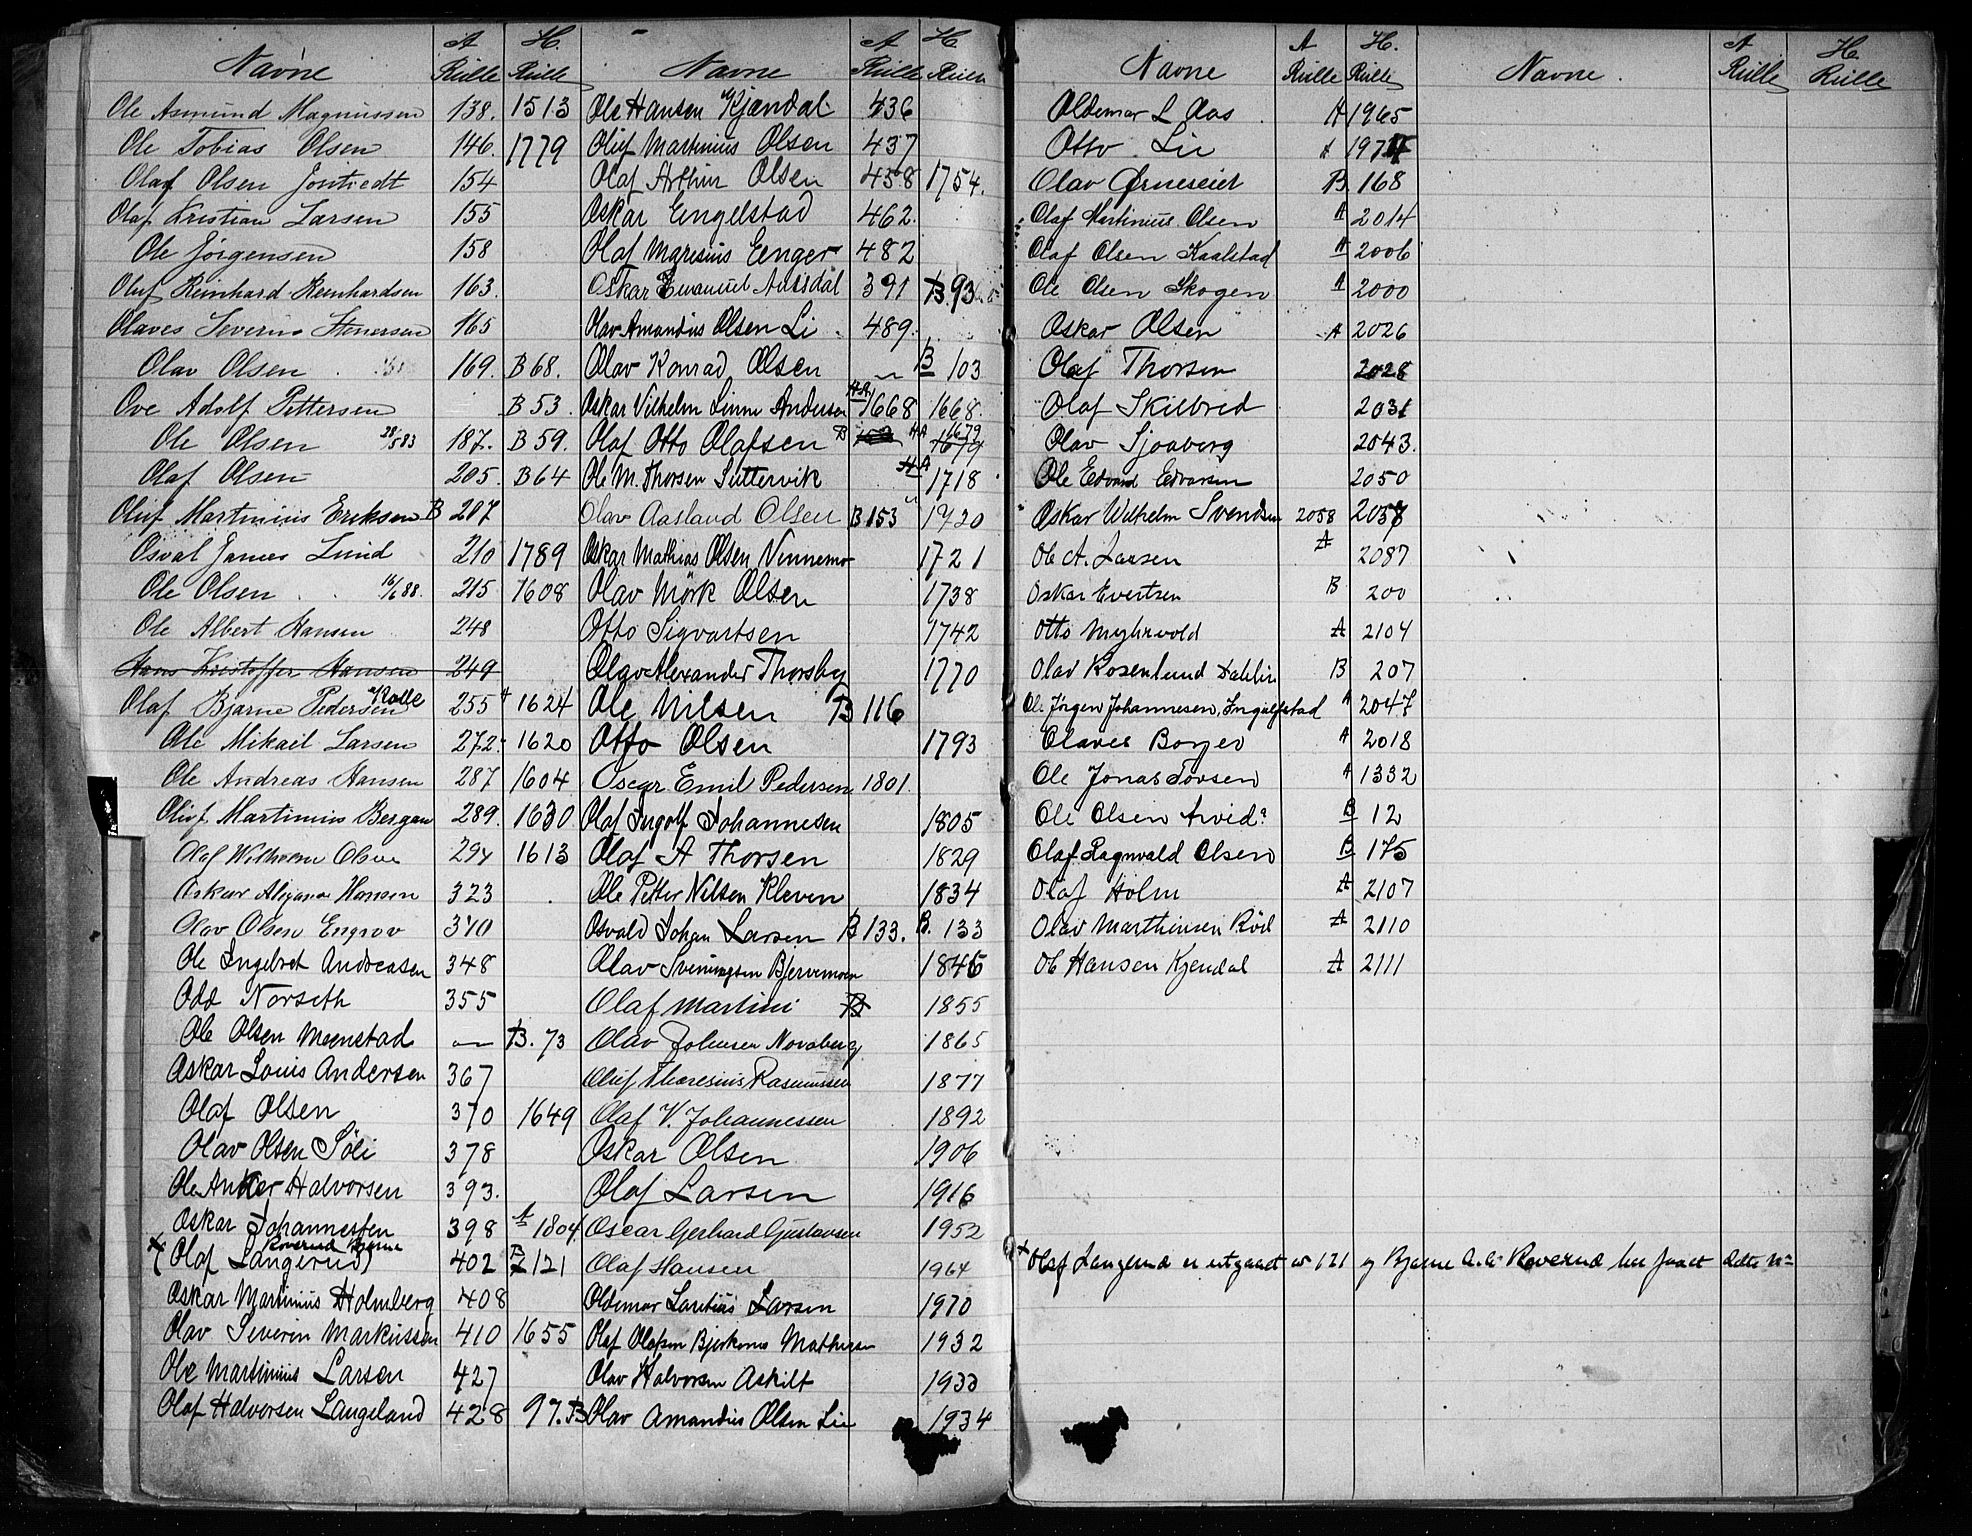 Navne A Rulle H. Rulle
Ole Asmund Magnussen 138. 1513
Ole Tobias Olsen 146. 1779
Olaf Olsen 154
Olaf Kristian Larsen 155
Ole Jørgensen 158
Oluf Reinhard Reinhardsen 163.
Olaves Severin 165
Olav Olsen 169. B 68.
Ove Adolf Pettersen B 53.
Ole Olsen 28/5 83 187. B 59.
Olaf Olsen 205. B 64
Oluf Martinius Eriksen B 207
Osval James Lund 210 1789
Ole Olsen 16/6 88. 215 1608
Ole Albert Hansen 248
Hans Kristoffer Hansen 249
Olaf Bjarne Pedersen Kolle 255 1624
Ole Mikail Larsen 272 1620
Ole Andreas Hansen 287 1604
Oluf Martinius Bergan 289. 1630
Olaf Wilhelm Olsen 294 1613
Oskar Hansen 323
Olav Olsen Engrav 340
Ole Ingebret Andreasen 348
Odd Norseth 355
Ole Olsen Meenstad — B. 73
Oskar Louis Andersen 367
Olaf Olsen 370 1649
Olav Olsen Söli 378
Ole Anker Halvorsen 393.
Oskar Johannessen 398 A 1804
Roverud Bjarne
x (Olaf Langerud) 402 B 121
Oskar Martinius Holmberg 408
Olav Severin Markussen 410 1655
Ole Martinius Larsen 427
Olaf Halvorsen Langeland 428 97. B
Navne A Rulle H Rulle
Ole Hansen Kjændal 436
Oluf Martinius Olsen 437
Olaf Arthur Olsen 458 1754.
Oskar Engelstad 462.
Olaf Maresius Eenger 482
Oskar Emanuel 391 B. 93
Olav Amandus Olsen Li 489.
Olav Konrad Olsen — B 103
Oskar Vilhelm Linne Andersen 1668 1668.
Olaf Otto Olafsen B A 1679
Ole M. Thorsen Settervik A 1718
Olav Aasland Olsen B 153 " 1720
Oskar Mathias Olsen Vennemo 1721
Olav Mörk Olsen 1738
Otto Sigvartsen 1742
Olav Alexander Thorsby 1770
Ole Nilsen B 116
Otto Olsen 1793
Oscar Emil Pedersen 1801.
Olaf Ingolf Johannesen 1805
Olaf A Thorsen 1829
Ole Petter Nilsen Kleven 1834
Osvald Johan Larsen B 133. B. 133
Olav Sveningsen Bjervemoen 1846
Olaf Martini B 1855
Olav Johnsen Novaberg 1865
Oluf Theresius Rasmussen 1877
Olaf V. Johannessen 1892
Oskar Olsen 1906
Olaf Larsen 1916
Oscar Gerhard Gustavsen 1952
Olaf Hansen 1964
Oldemar Laretius Larsen 1970
Olaf Olafsen Bjerknes Mathisen 1932
Olav Halvorsen Askilt 1933
Olav Amandus Olsen Lie 1934
Navne A Rulle H. Rulle
Oldemar L Aas A 1965
Otto Lie A
Olav Ørneseier B 168
Olaf Martinius Olsen A 2014
Olaf Olsen Kaalstad A 2006
Ole Olsen Skogen A 2000
Oskar Olsen A 2026
Olaf Thorsen 2028
Olaf Skilbred 2031
Olav Sjoaberg 2043.
Ole Edvard Edvarsen 2050
Oskar Wilhelm Svendsen 2058 2058
Ole A. Larsen A 2087
Oskar Evertsen B 200
Otto Myhrvold A 2104
Olav Rosenlund Dahlin B 207
Ole Jörgen Johannesen, Ingulfstad A 2047
Olaves Borger A 2018
Ole Jonas Torsen A 1332
Ole Olsen Arvid? B 12
Olaf Ragnvald Olsen B 175
Olaf Holm A 2107
Olav Marthinsen Röil A 2110
Ole Hansen Kjendal A 2111
x Olaf Langerud er utgaaet av 121 og Bjarne A. G. Roverud har faaet dette nr
Navne. A Rulle H Rulle